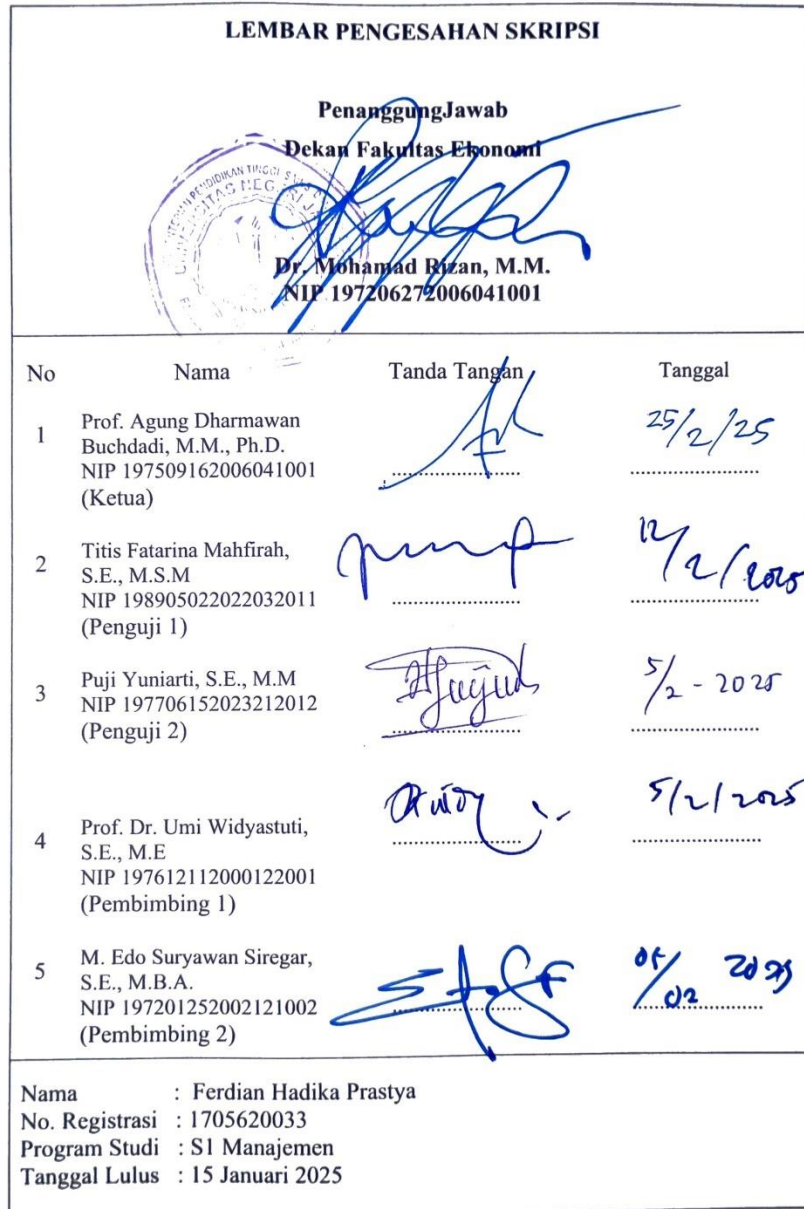 LEMBAR PENGESAHAN SKRIPSI
PenanggungJawab
Dekan Fakultas Ekonomi
UNIVERSITAS NEGERI
Dr. Mohamad Rizan, M.M.
NIP 197206272006041001
No Nama Tanda Tangan Tanggal
1 Prof. Agung Dharmawan
Buchdadi, M.M., Ph.D.
NIP 197509162006041001
(Ketua)
25/2/25
2 Titis Fatarina Mahfirah,
S.E., M.S.M
NIP 198905022022032011
(Penguji 1)
12/2/2025
3 Puji Yuniarti, S.E., M.M
NIP 197706152023212012
(Penguji 2)
5/2 - 2025
4 Prof. Dr. Umi Widyastuti,
S.E., M.E
NIP 197612112000122001
(Pembimbing 1)
5/2/2025
5 M. Edo Suryawan Siregar,
S.E., M.B.A.
NIP 197201252002121002
(Pembimbing 2)
Nama : Ferdian Hadika Prastya
No. Registrasi : 1705620033
Program Studi : S1 Manajemen
Tanggal Lulus : 15 Januari 2025